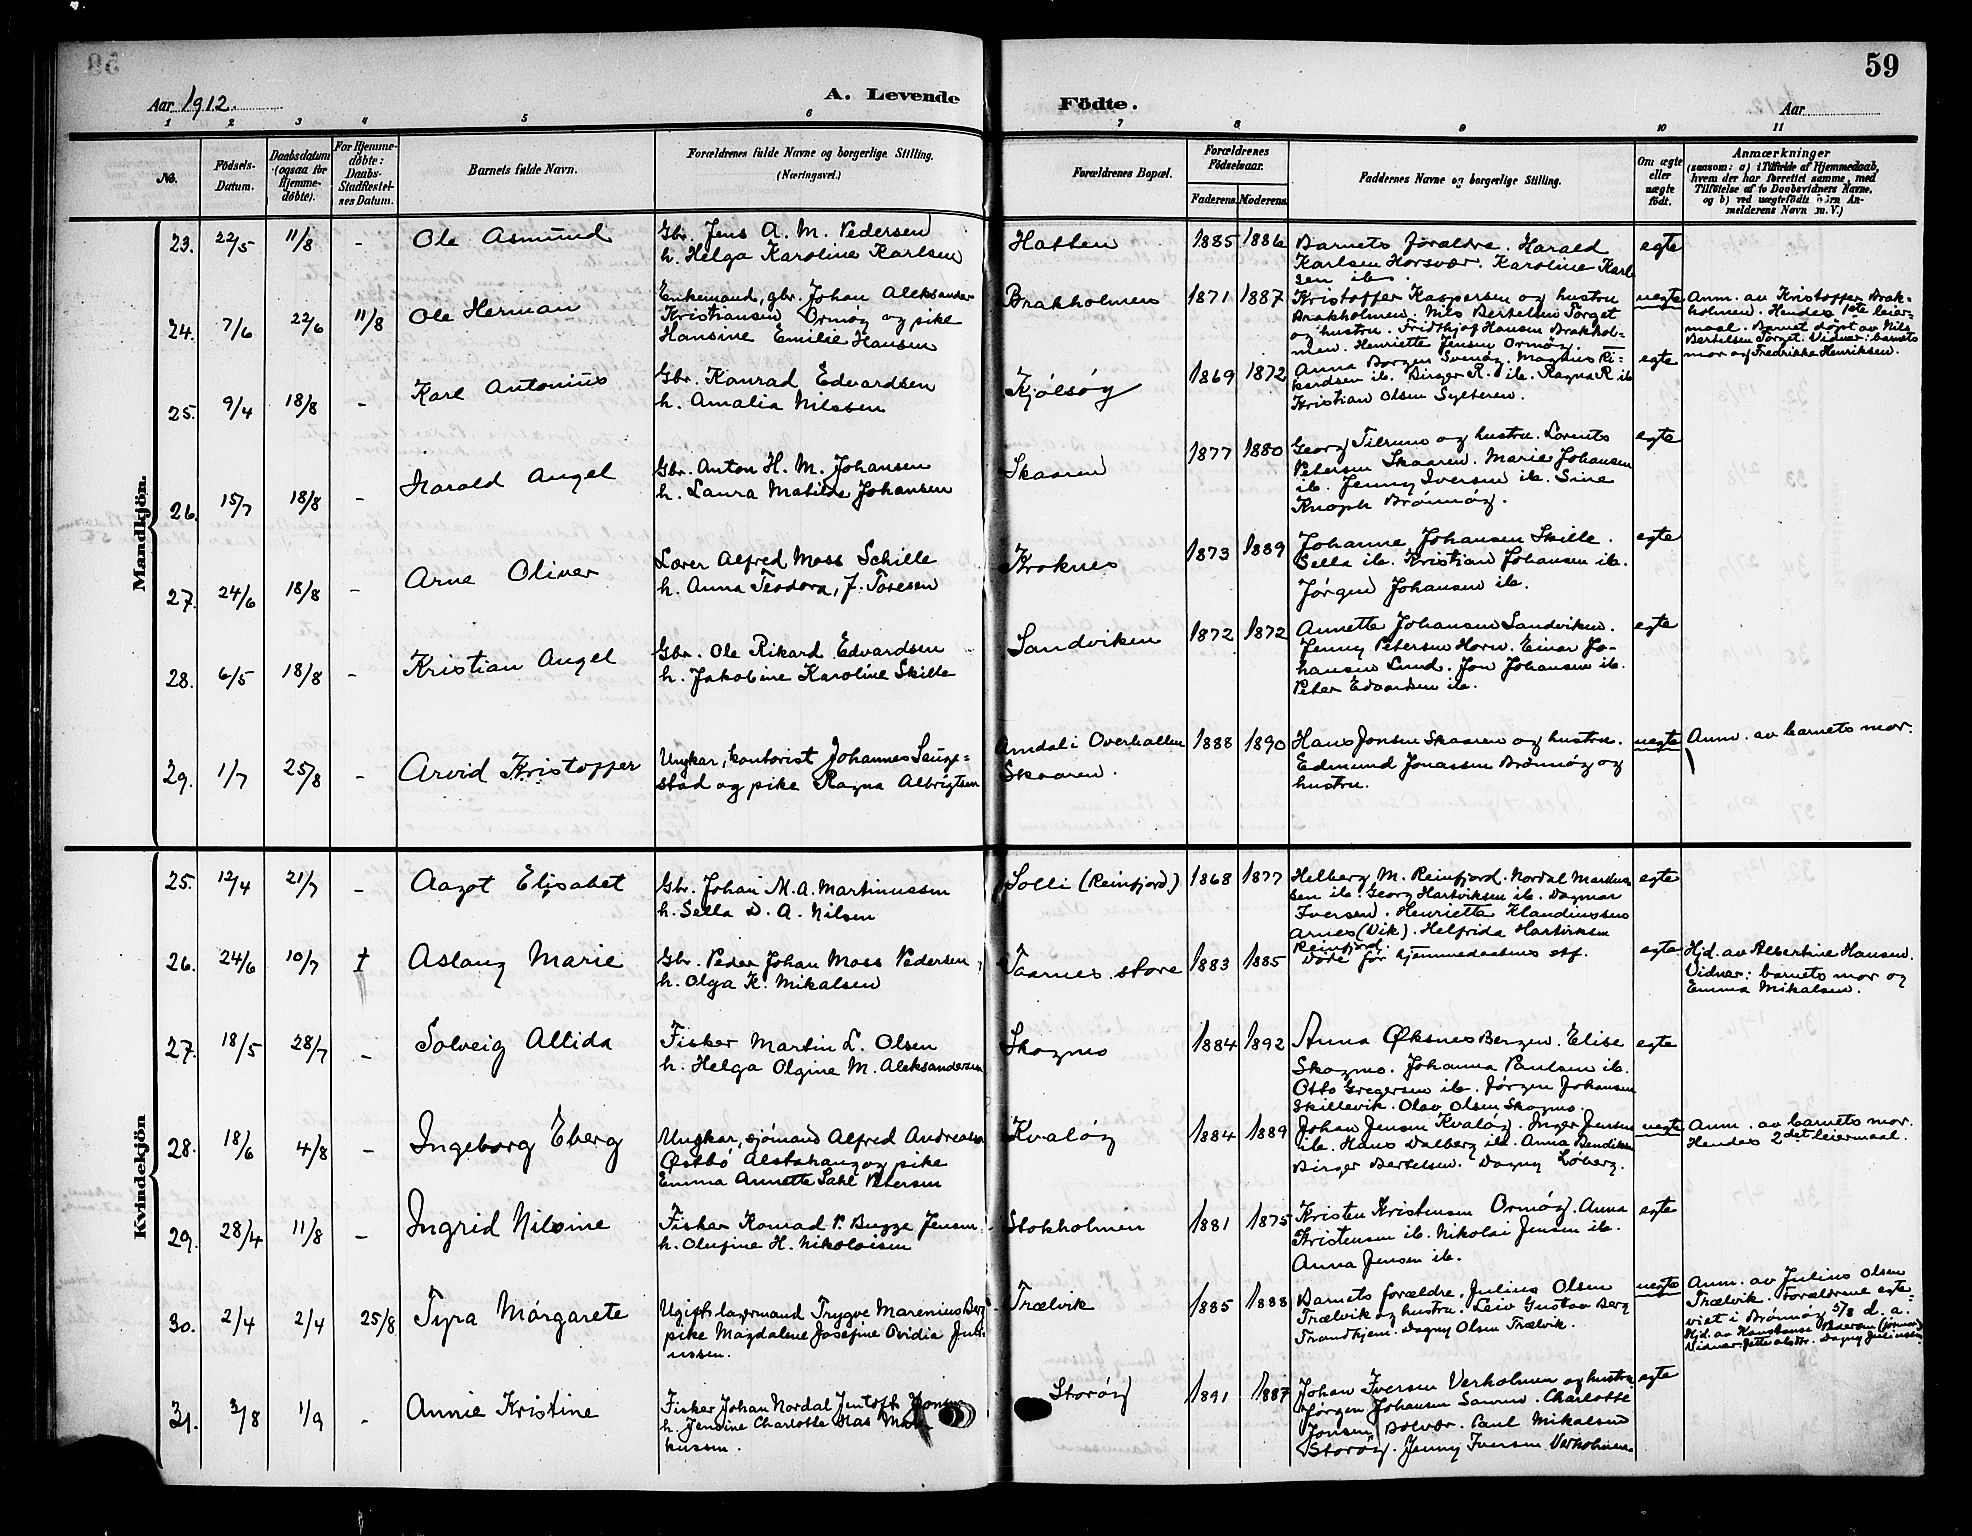 59
Aar 1912.
A. Levende Födte.
Aar
1 2 3 4 5 6 7 8 9 10 11
No.
Födsels-Datum.
Daabsdatum (ogsaa for Hjemmedøbte).
For Hjemmedøbte: Daabs-Stadfæstelses Datum.
Barnets fulde Navn.
Forældrenes fulde Navne og borgerlige Stilling. (Næringsvei.)
Forældrenes Bopæl.
Forældrenes Födselsaar.
Faderens. Moderens.
Faddernes Navne og borgerlige Stilling.
Om ægte eller uægte født.
Anmærkninger
(saasom: a) i Tilfælde af Hjemmedaab,
hvem der har forrettet samme, med
Tilføielse af to Daabsvidners Navne,
og b) ved uægtefödte Börn Anmelderens Navn m. V.)
Mandkjön.
23. 22/5 11/8 - Ole Asmund
Gbr. Jens A. M. Pedersen
h. Helga Karoline Karlsen
Hatten 1885 1886
Barnets forældre. Harald
Karlsen Horsvær. Karoline Karl
sen ib.
egte
24. 7/6 22/6 11/8 Ole Herman
Enkemand, gbr. Johan Aleksander
Kristiansen Ormøy og pike
Hansine Emilie Hansen
Brakholmen 1871 1887
Kristoffer Kaspersen og hustru
Brakholmen. Nils Bertelsen Torget
og hustru. Fridthjof Hansen Brakhol-
men. Henriette Jensen Ormøy.
uegte
Anm. av Kristoffer Brak-
holmen. Hendes 1ste leier-
maal. Barnet døpt av Nils
Bertelsen Torget. Vidner: barnets
mor og Fredrikke Henriksen.
25. 9/4 18/8 - Karl Antonius
Gbr. Konrad Edvardsen
h. Amalia Nilssen
Kjølsøy 1869 1872
Anna Borgen Svinøy. Magnus Ri-
kardsen ib. Birger R. ib. Ragna R. ib
Kristian Olsen Sylteren.
egte
26. 15/7 18/8 - Harald Angel
Gbr. Anton H. M. Johansen
h. Laura Matilde Johansen
Skaaren 1877 1880
Georg Tilrum og hustru. Lorents
Petersen Skaaren. Marie Johansen
ib. Jenny Iversen ib. Sine
Knoph Brønnøy.
egte
27. 24/6 18/8 - Arne Oliver
Lærer Alfred Moss Schille
h. Anna Teodora, f. Toresen
Kroknes 1873 1889
Johanne Johansen Skille.
Sella ib. Kristian Johansen ib.
Jørgen Johansen ib.
egte
28. 6/5 18/8 - Kristian Angel
Gbr. Ole Rikard Edvardsen
h. Jakobine Karoline Skille
Sandviken 1872 1872
Annette Johansen Sandviken.
Jenny Petersen Horn. Einar Jo-
hansen Lund. Jon Johansen ib.
Peter Edvardsen ib.
egte
29. 1/7 25/8 - Arvid Kristoffer
Ungkar, kontorist Johannes Seuge-
stad og pike Ragna Albrigtsen
Amdal i Overhallen
Skaaren. 1888 1890
Hans Jonsen Skaaren og hustru.
Edmund Jonassen Brønnøy og
hustru.
uegte
Anm. av barnets mor.
Kvindekjön
25. 12/4 21/7 - Aagot Elisabet
Gbr. Johan M. A. Martinussen
h. Sella D. A. Nilsen
Solli (Reinfjord) 1868 1877
Helberg M. Reinfjord. Nordal Martinus
sen ib. Georg Hartviksen ib. Dagmar
Iversen. Henriette Klaudiussen
Arnes (Vik). Helfrida Hartviksen
Reinfjord.
egte
26. 24/6 10/7 † Aslaug Marie
Gbr. Peder Johan Moss Pedersen
h. Olga K. Mikalsen
Taarnes store 1883 1885
Døde før hjemmedaabens stf.
egte
Hjd. av Albertine Hansen.
Vidner: barnets mor og
Emma Mikalsen.
27. 18/5 28/7 - Solveig Allida
Fisker Martin L. Olsen
h. Helga Olgine M. Aleksandersen
Skogmo 1884 1892
Anna Øksnes Bergen. Elise
Skogmo. Johanna Paulsen ib.
Otto Gregersen ib. Jørgen Johansen
Skillevik. Olav Olsen Skogmo.
egte
28. 18/6 4/8 - Ingeborg Eberg
Ungkar, sjømand Alfred Andreassen
Østbø Alstahaug og pike
Emma Annette Sahl Petersen
Kvaløy 1884 1889
Johan Jensen Kvaløy. Inger Jensen
ib. Hans Dalberg ib. Anna Bendiksen
Birger Bertelsen. Dagny Løberg.
uegte
Anm. av barnets mor.
Hendes 2det leiermaal.
29. 28/4 11/8 - Ingrid Nilsine
Fisker Konrad P. Bugge Jensen
h. Olufine H. Nikolaisen
Stokholmen 1881 1875
Kristen Kristensen Ormøy. Anna
Kristensen ib. Nikolai Jensen ib.
Anna Jensen ib.
egte
30. 2/4 2/4 25/8 Tyra Margarete
Ugift lagermand Trygve Marenius Berg
pike Magdalene Josefine Ovidia Juli-
ussen.
Trælvik 1885 1888
Barnets forældre. Julius Olsen
Trælvik og hustru. Leiv Gustav Berg
Trondhjem. Dagny Olsen Trælvik.
uegte
Anm. av Julius Olsen
Trælvik. Forældrene egte-
viet i Brønnøy 5/8 d. a.
Hjd. av Konstanse Pedersen (jormor)
Vidner: Dagny Juliussen
31. 3/8 1/9 - Annie Kristine
Fisker Johan Nordal Jentoft
h. Jensine Charlotte Mar
kussen.
Storøy 1891 1887
Johan Iversen Verholmen og hustru
Jørgen Johansen Sømnes. Charlotte
Jonsen Bolvær. Paul Mikalsen
Storøy. Jenny Iversen Verholmen
egte